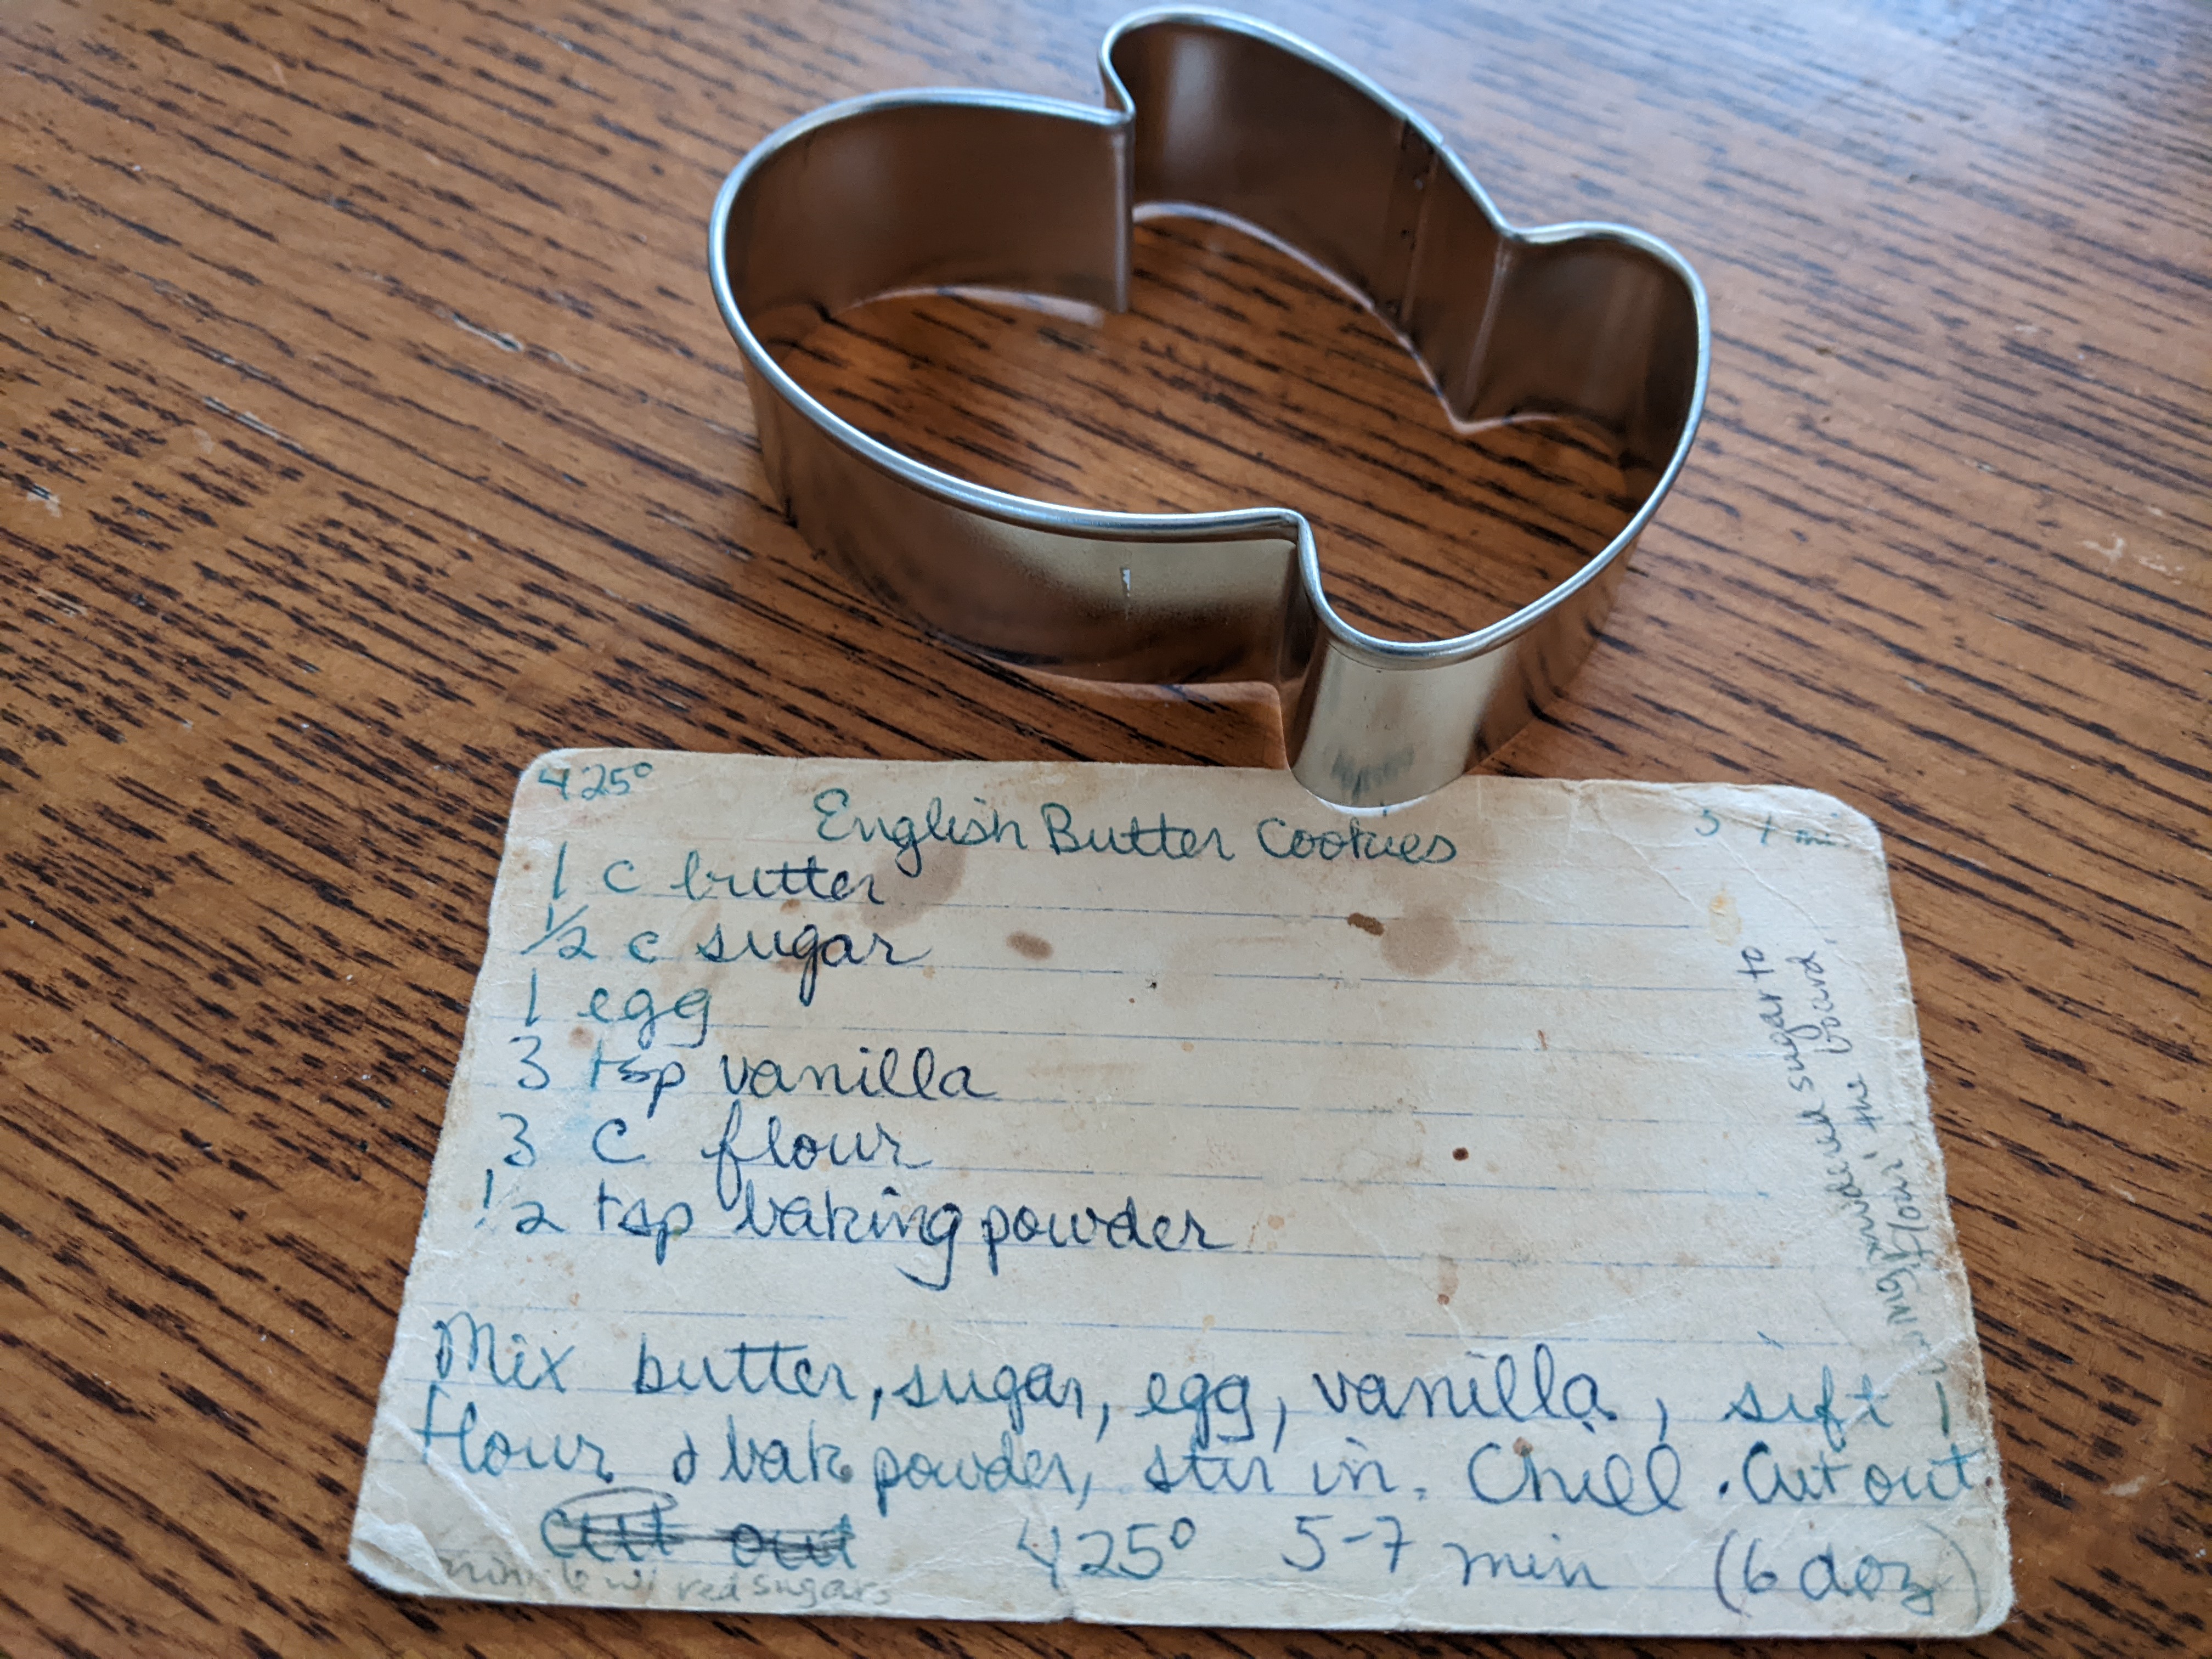 425°
English Butter Cookies
1 c butter
½ c sugar
1 egg
3 tsp vanilla
3 c flour
½ tsp baking powder
Mix butter, sugar, egg, vanilla, sift
flour & bak powder, stir in. Chill. Cut out
cut out 425° 5-7 min (6 doz)
w/ red sugars
sugar to
"flour" the board